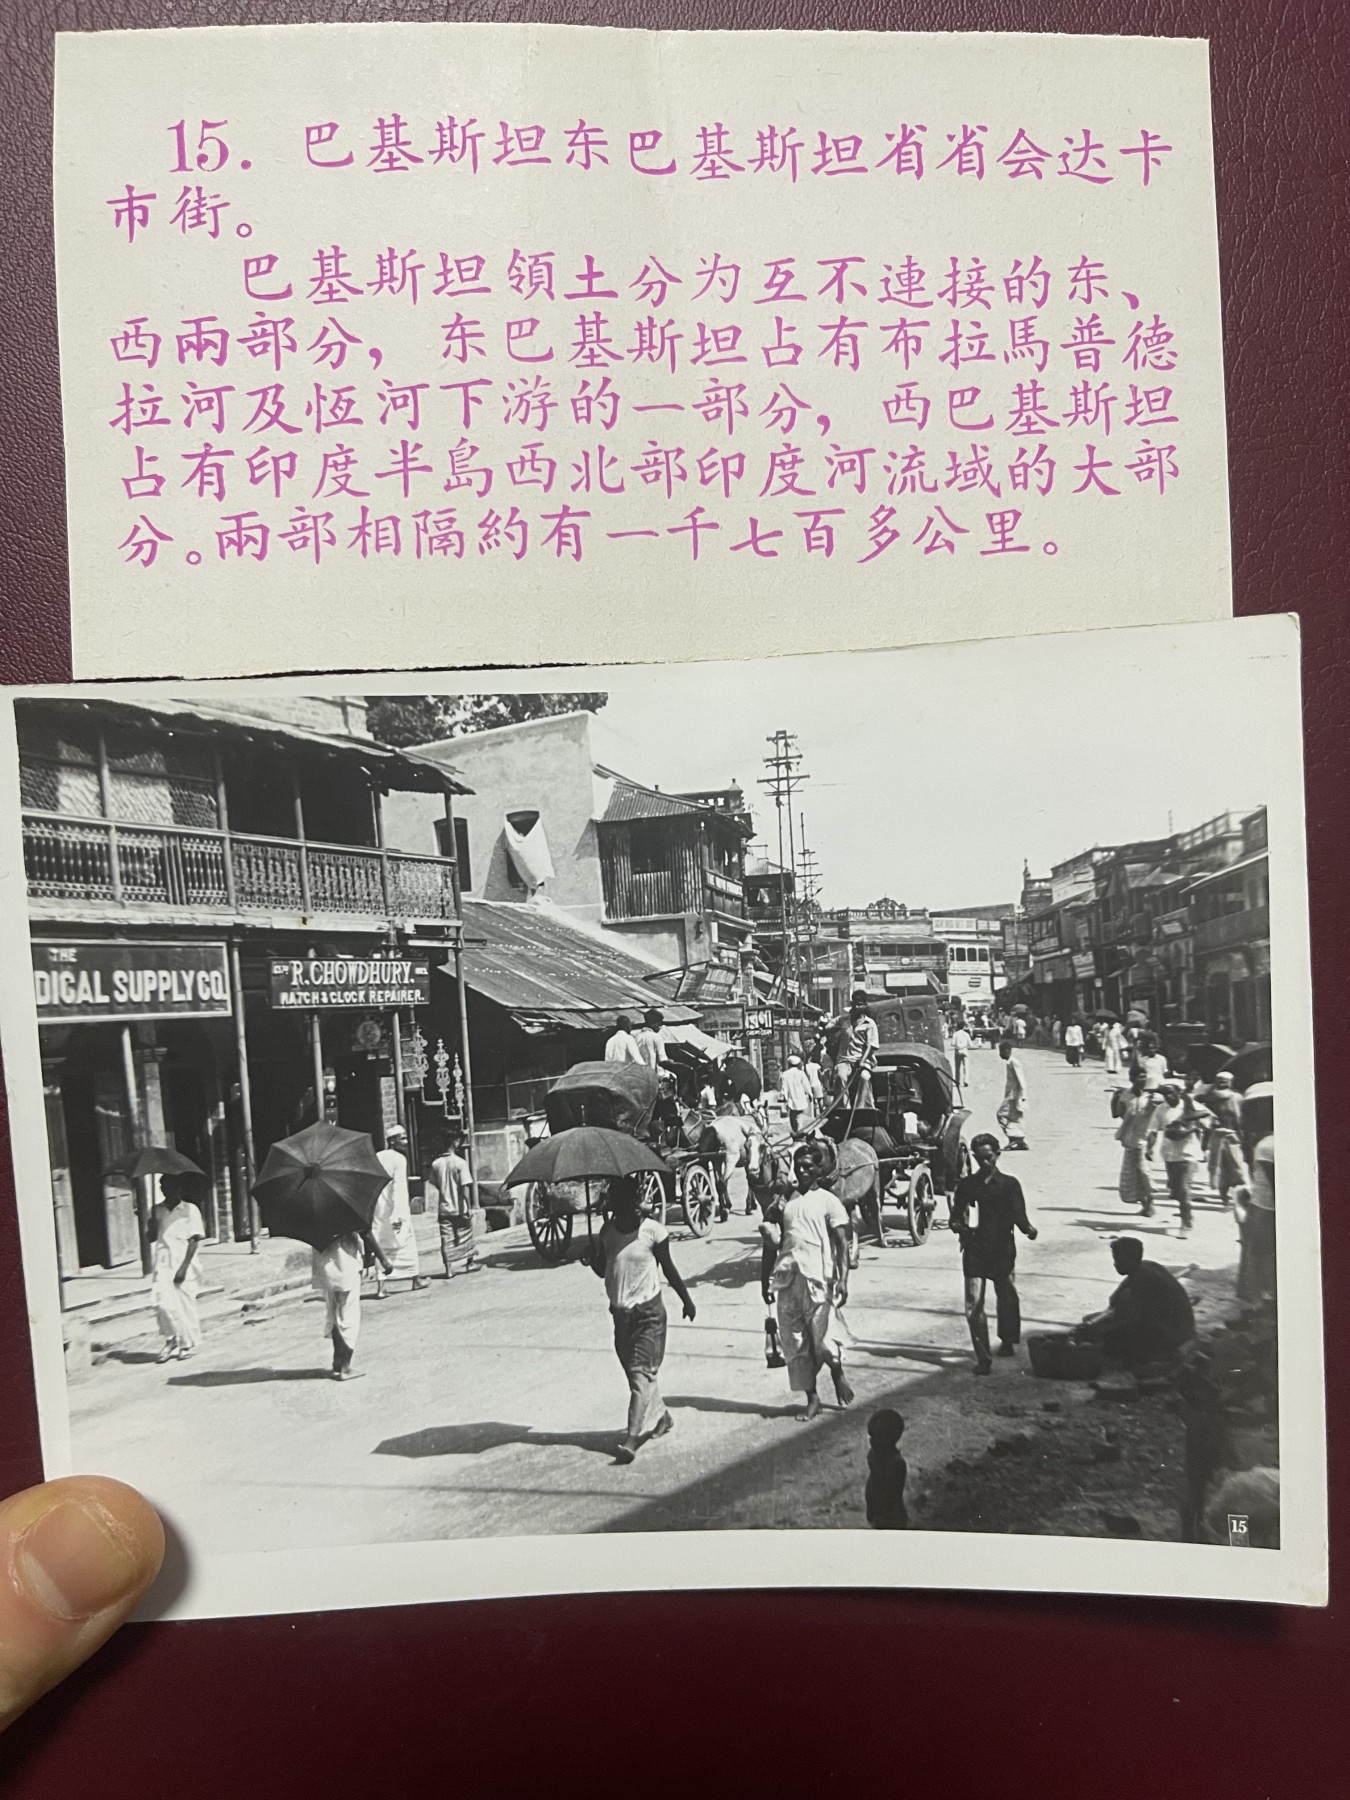 15. 巴基斯坦东巴基斯坦省省会达卡
市街。
巴基斯坦領土分为互不連接的东、
西兩部分，东巴基斯坦占有布拉馬普德
拉河及恆河下游的一部分，西巴基斯坦
占有印度半島西北部印度河流域的大部
分。兩部相隔約有一千七百多公里。
THE
DICAL SUPPLY CO.
R. CHOWDHURY.
WATCH & CLOCK REPAIRER.
15